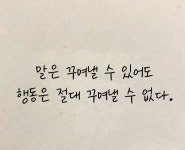 말은 꾸며낼 수 있어도
행동은 절대 꾸며낼 수 없다.